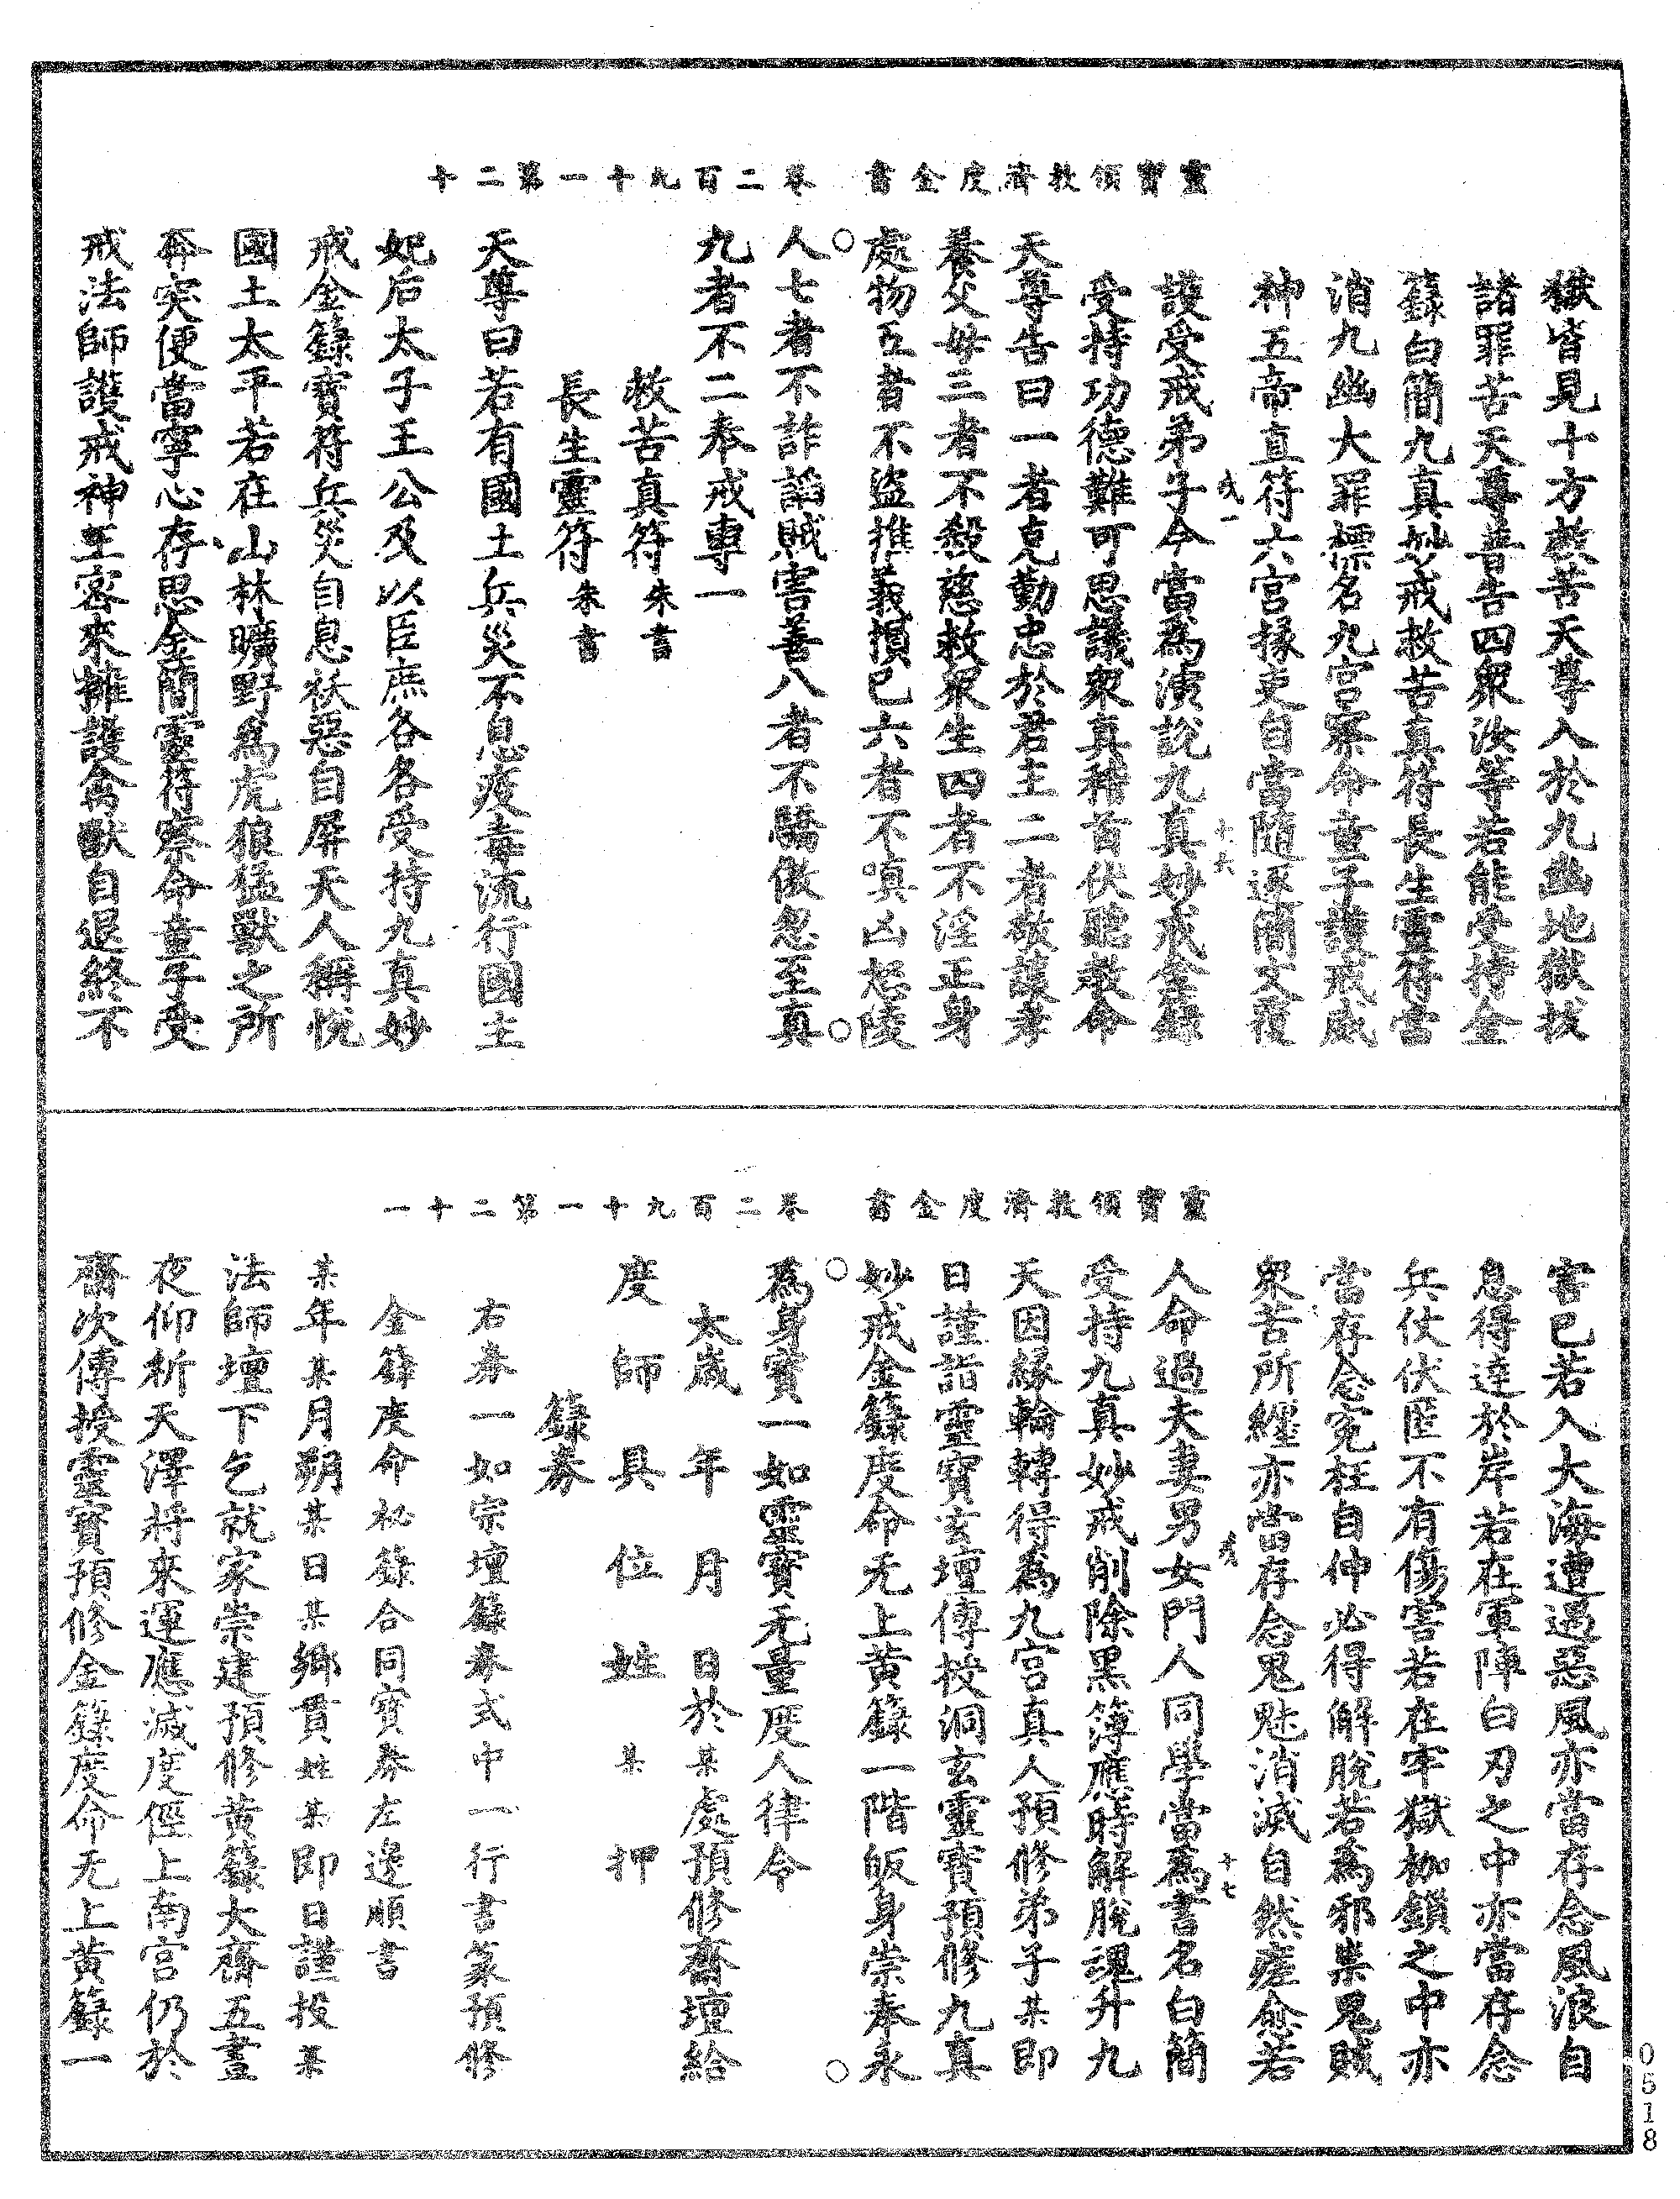 靈寶領教濟度金書　卷二百九十一第二十
獄皆見十方救苦天尊入於九幽地獄拔
諸罪苦天尊普告四衆汝等若能受持金
籙白簡九真妙戒救苦真符長生靈符當
消九幽大罪標名九宮察命童子護戒威
神五帝直符六宮掾吏自當隨逐簡文覆
戎一　十六
護受戒弟子今當為演說九真妙戒金籙
受持功德難可思議衆真稽首伏聽教命
天尊告曰一者克勤忠於君主二者敬讓孝
養父母三者不殺慈救衆生四者不淫正身
處物五者不盜推義損己六者不嗔凶怒陵
人七者不詐謟賊害善八者不驕傲忽至真
九者不二奉戒專一
救苦真符朱書
長生靈符朱書
天尊曰若有國土兵災不息疫毒流行國主
妃后太子王公及以臣庶各各受持九真妙
戒金籙寶符兵災自息袄惡自屏天人稱悅
國土太平若在山林曠野為虎狼猛獸之所
奔突便當寧心存思金簡靈符察命童子受
戒法師護戒神王密來擁護禽獸自退終不
靈寶領教濟度金書　卷二百九十一第二十一
害己若入大海遭過惡風亦當存念風浪自
息得達於岸若在軍陣白刃之中亦當存念
兵仗伏匿不有傷害若在牢獄枷鎖之中亦
當存念冤枉自伸必得解脫若為邪祟鬼賊
衆苦所纏亦當存念鬼魅消滅自然痊愈若
戎　十七
人命過夫妻男女門人同學當為書名白簡
受持九真妙戒削除黑簿應時解脫魂升九
天因緣輪轉得為九宮真人預修弟子某即
日謹詣靈寶玄壇傳授洞玄靈寶預修九真
妙戒金籙度命无上黃籙一階皈身崇奉永
為身寶一如靈寶无量度人律令
太歲　年　月　日於某處預修齋壇給
度師具位姓某押
籙券
右券一如宗壇籙券式中一行書篆預修
金籙度命秘籙合同寶券左邊順書
某年某月朔某日某鄉貫姓某即日謹投某
法師壇下乞就家崇建預修黃籙大齋五晝
夜仰祈天澤將來運應滅度徑上南宮仍於
齋次傳授靈寶預修金籙度命无上黃籙一
0518